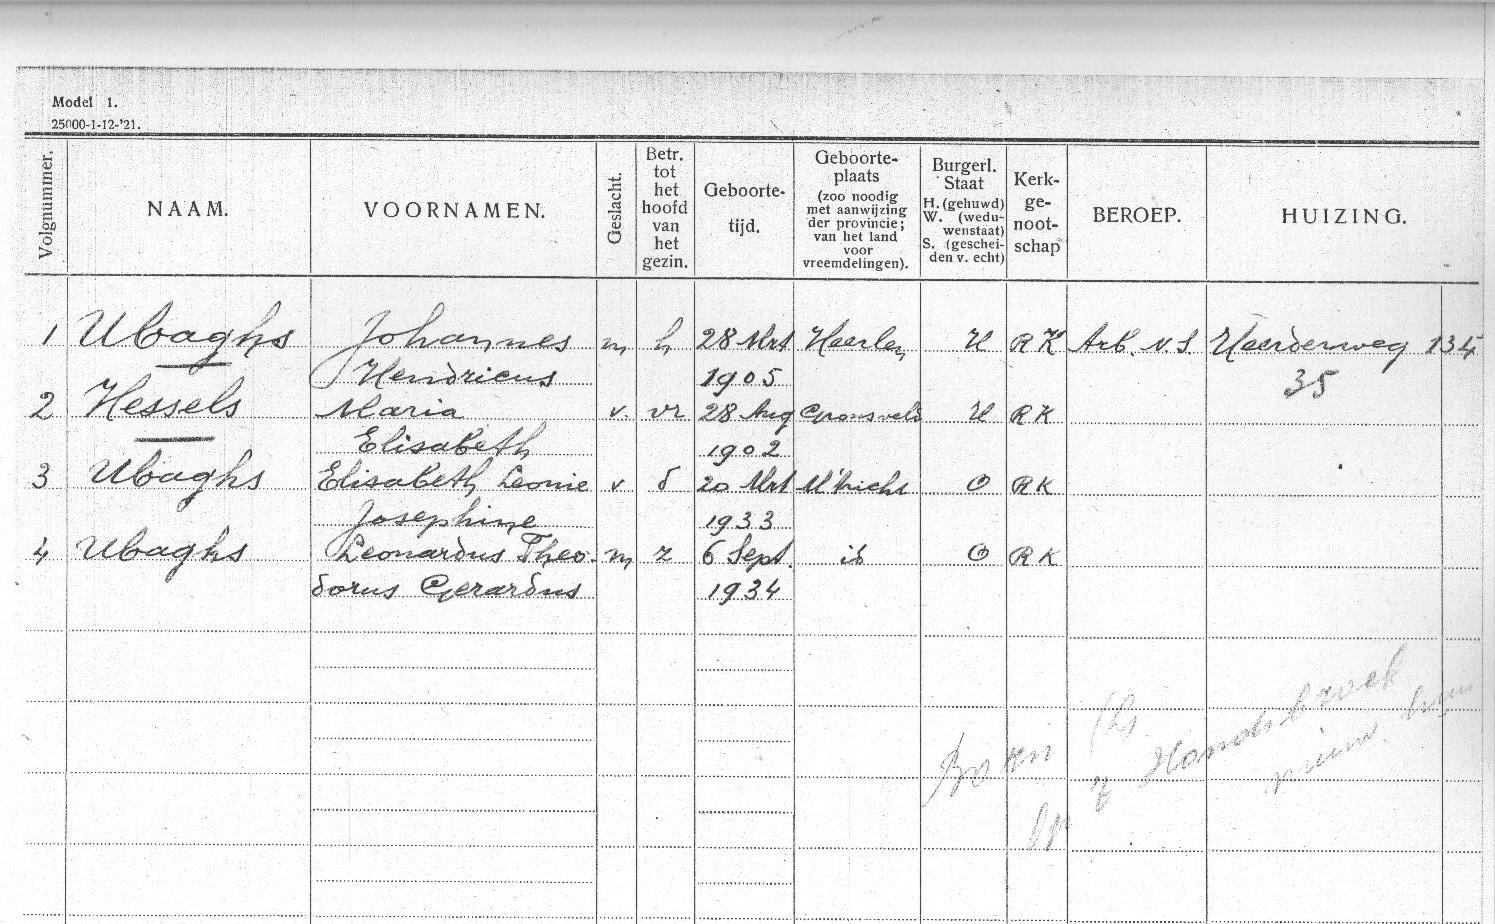 Model 1.
25000-1-12-'21.
Volgnummer.
NAAM.
VOORNAMEN.
Geslacht.
Betr.
tot
het
hoofd
van
het
gezin.
Geboorte-
tijd.
Geboorte-
plaats
(zoo noodig
met aanwijzing
der provincie;
van het land
voor
vreemdelingen).
Burgerl.
Staat
H. (gehuwd)
W. (wedu-
wenstaat)
S. (geschei-
den v. echt)
Kerk-
ge-
noot-
schap
BEROEP.
HUIZING.
1 Ubaghs Johannes m h 28 Mrt Heerlen H RK Arb. N.S. 134
Hendricus 1905 35
2 Hessels Maria v. vr 28 Aug Gronsveld H RK
Elisabeth 1902
3 Ubaghs Elisabeth Leonie v d 20 Mrt M'tricht O RK
Josephine 1933
4 Ubaghs Leonardus Theo- m z 6 Sept. id O RK
dorus Gerardus 1934